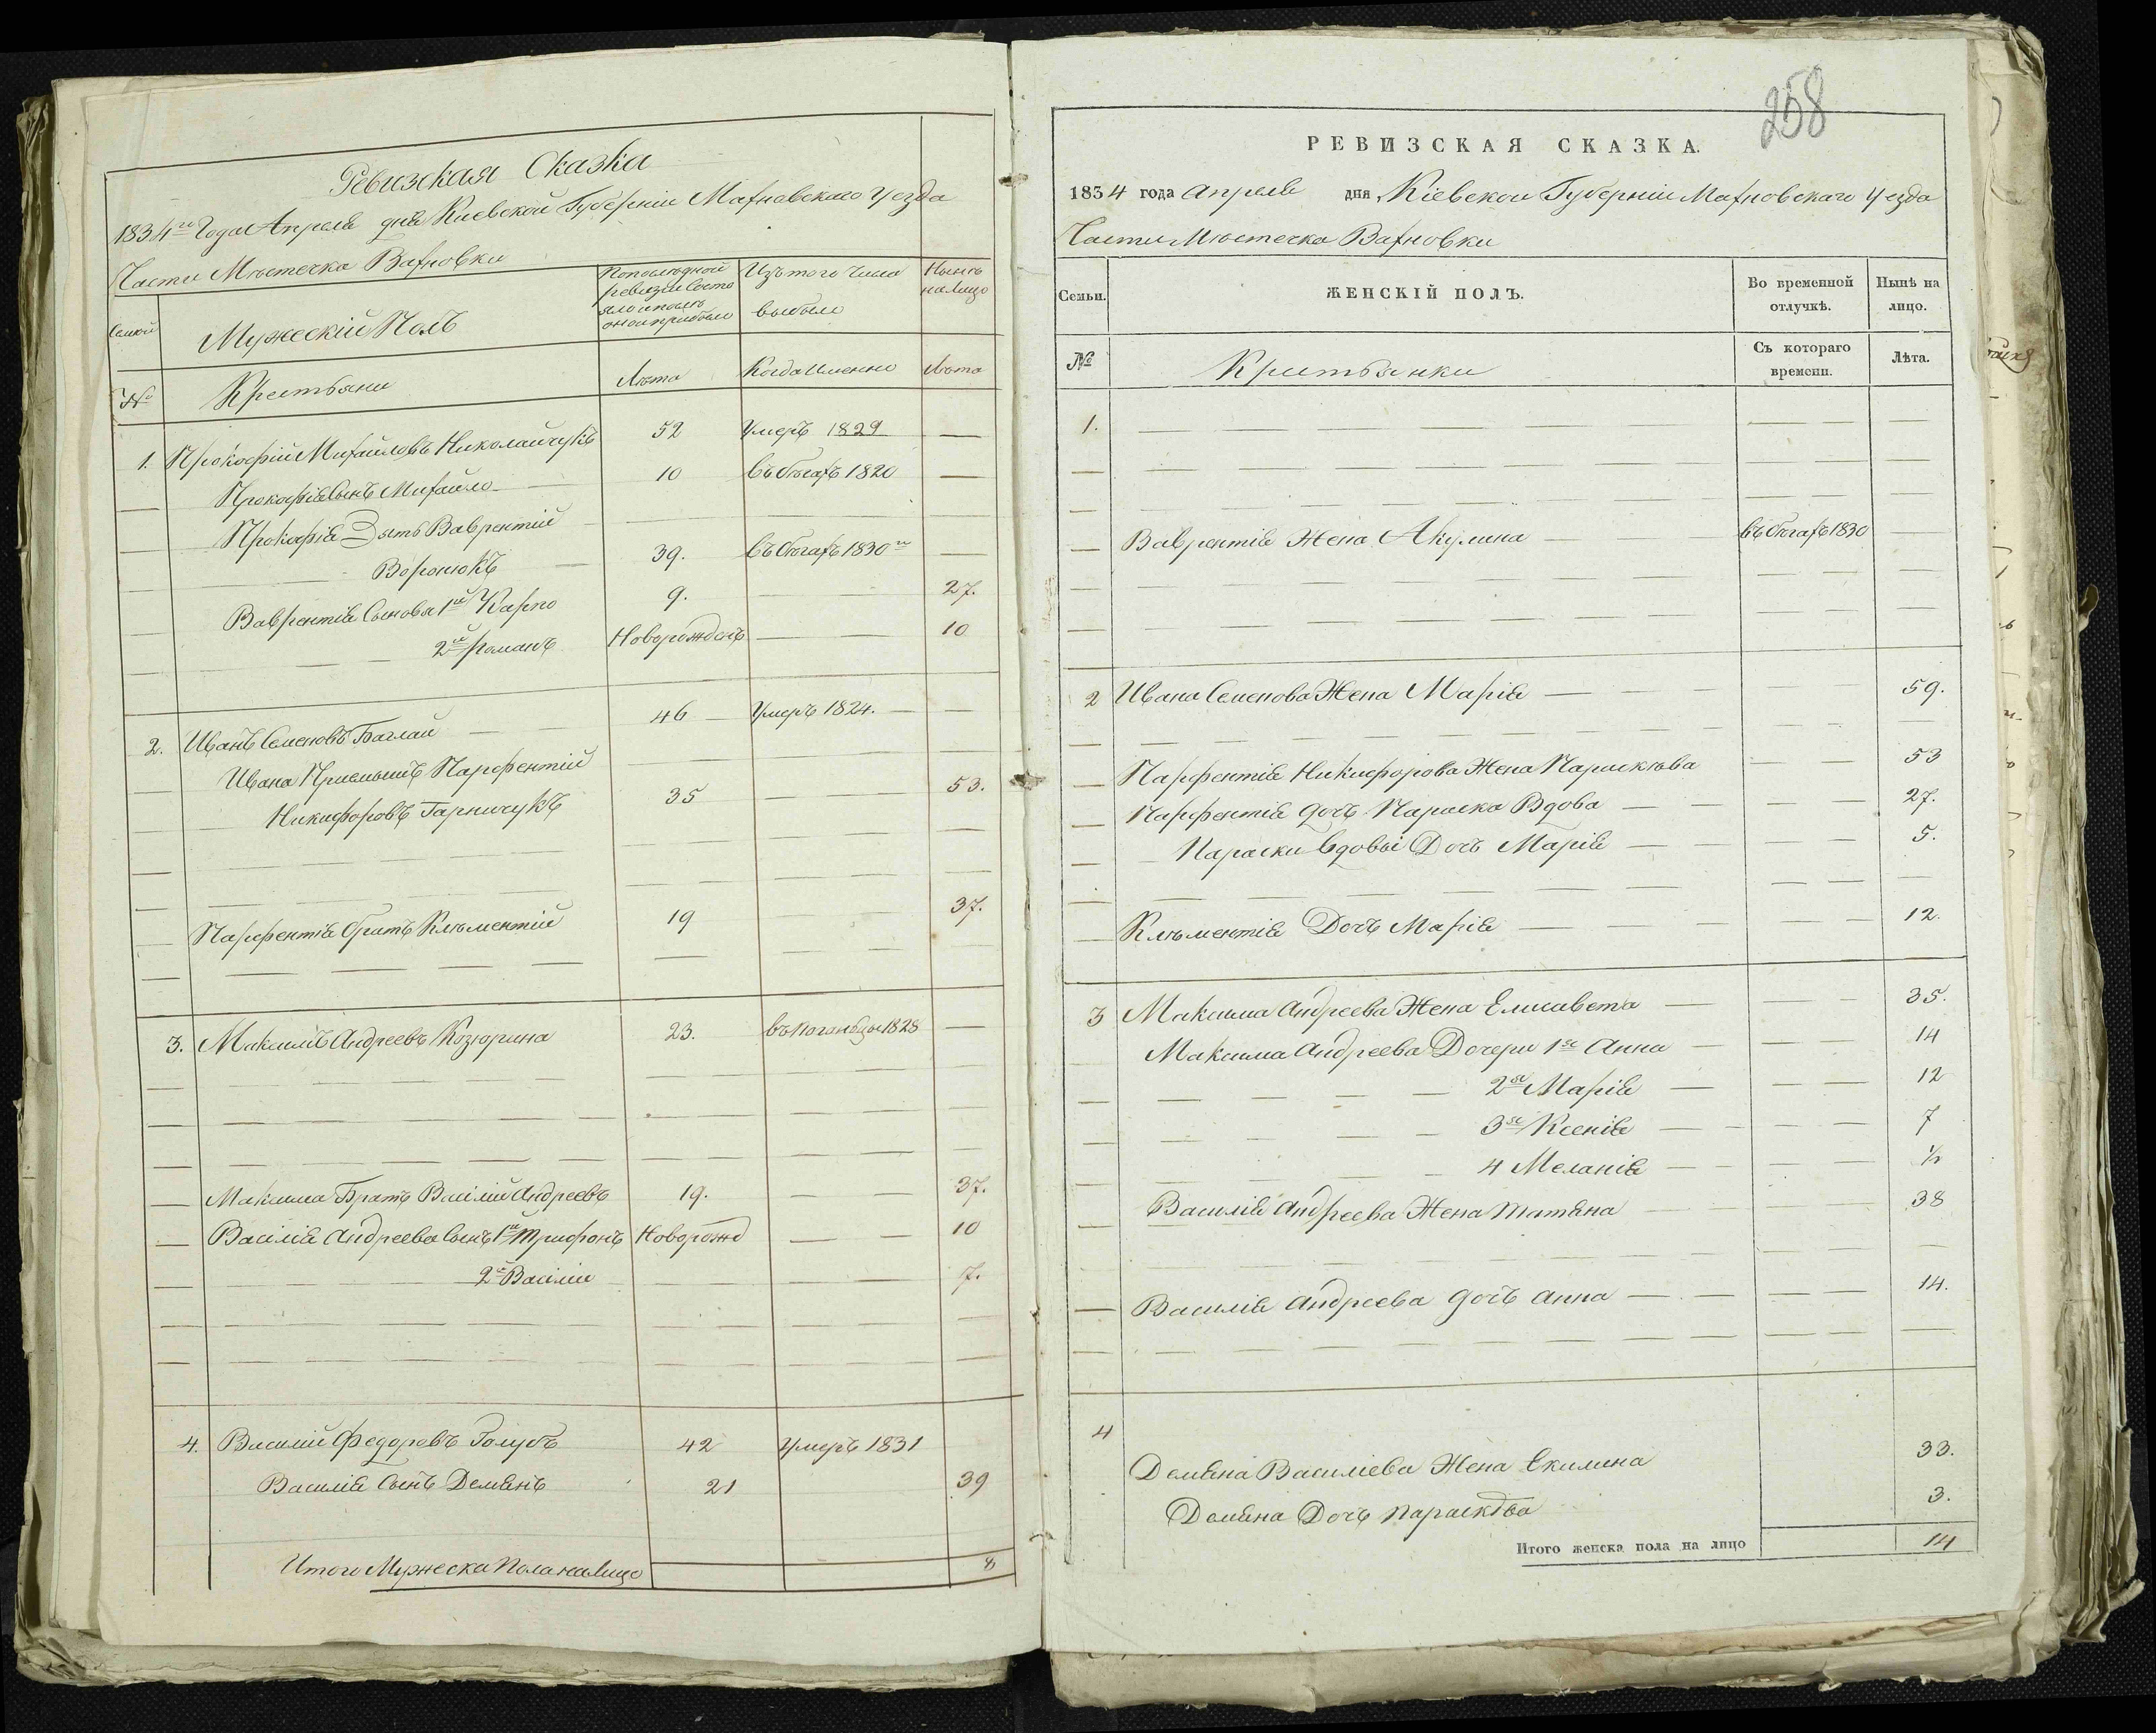 Ревизская Сказка
1834го Года Апреля дня Киевской Губернии Махновскаго Уезда
Части Мѣстечка Вахновки
Семьи
Мужескій Полъ
По последней ревизіи состояло и после оной прибыло
Изъ того числа выбыло
Нынѣ на лицо
№
Крестьяни
Лѣта
Когда именно
Лѣта
1. Прокофій Михайловъ Николайчукъ 52 Умеръ 1829
Прокофія Сынъ Михайло 10 въ бѣгахъ 1820
Прокофія Зять Ваврентій
Воронюкъ 39. въ бѣгахъ 1830го
Ваврентія Сыновя 1й Карпо 9. 27.
2й Романъ Новорожденъ 10
2. Иванъ Семеновъ Баглай 46 Умеръ 1824.
Ивана Приемышъ Парфентій
Никифоровъ Гарничукъ 35 53.
Парфентія братъ Клѣментій 19 37.
3. Максимъ Андреевъ Козюрина 23. 1828
Максима Братъ Василій Андреевъ 19. 37.
Василія Андреева сынъ 1й Трифонъ Новорожд 10
2й Василии 7.
4. Василий Федоровъ Голубъ 42 Умеръ 1831
Василия Сынъ Демянъ 21 39
Итого Мужеска Пола на Лицо 8
258
РЕВИЗСКАЯ СКАЗКА.
1834 года Апреля дня Кіевской Губерніи Махновскаго Уезда
Части Мѣстечка Вахновки
Семьи.
ЖЕНСКІЙ ПОЛЪ.
Во временной отлучкѣ.
Нынѣ на лицо.
№
Крестьянки
Съ котораго времени.
Лѣта.
1.
Ваврентія Жена Акулина въ бѣгахъ 1830
2 Ивана Семенова Жена Марія 59.
Парфентія Никифорова Жена Параскѣва 53
Парфентія дочь Параска Вдова 27.
Параски вдовы Дочь Марія 5.
Клѣментія Дочъ Марія 12.
3 Максима Андреева Жена Елисавета 35.
Максима Андреева Дочери 1я Анна 14
2я Марія 12
3я Ксенія 7
4 Меланія ½
Василія Андреева Жена Татяна 38
Василія Андреева дочъ Анна 14.
4
Демяна Василіева Жена Екилина 33.
Демяна Дочъ Параскѣва 3.
Итого женска пола на лицо 14